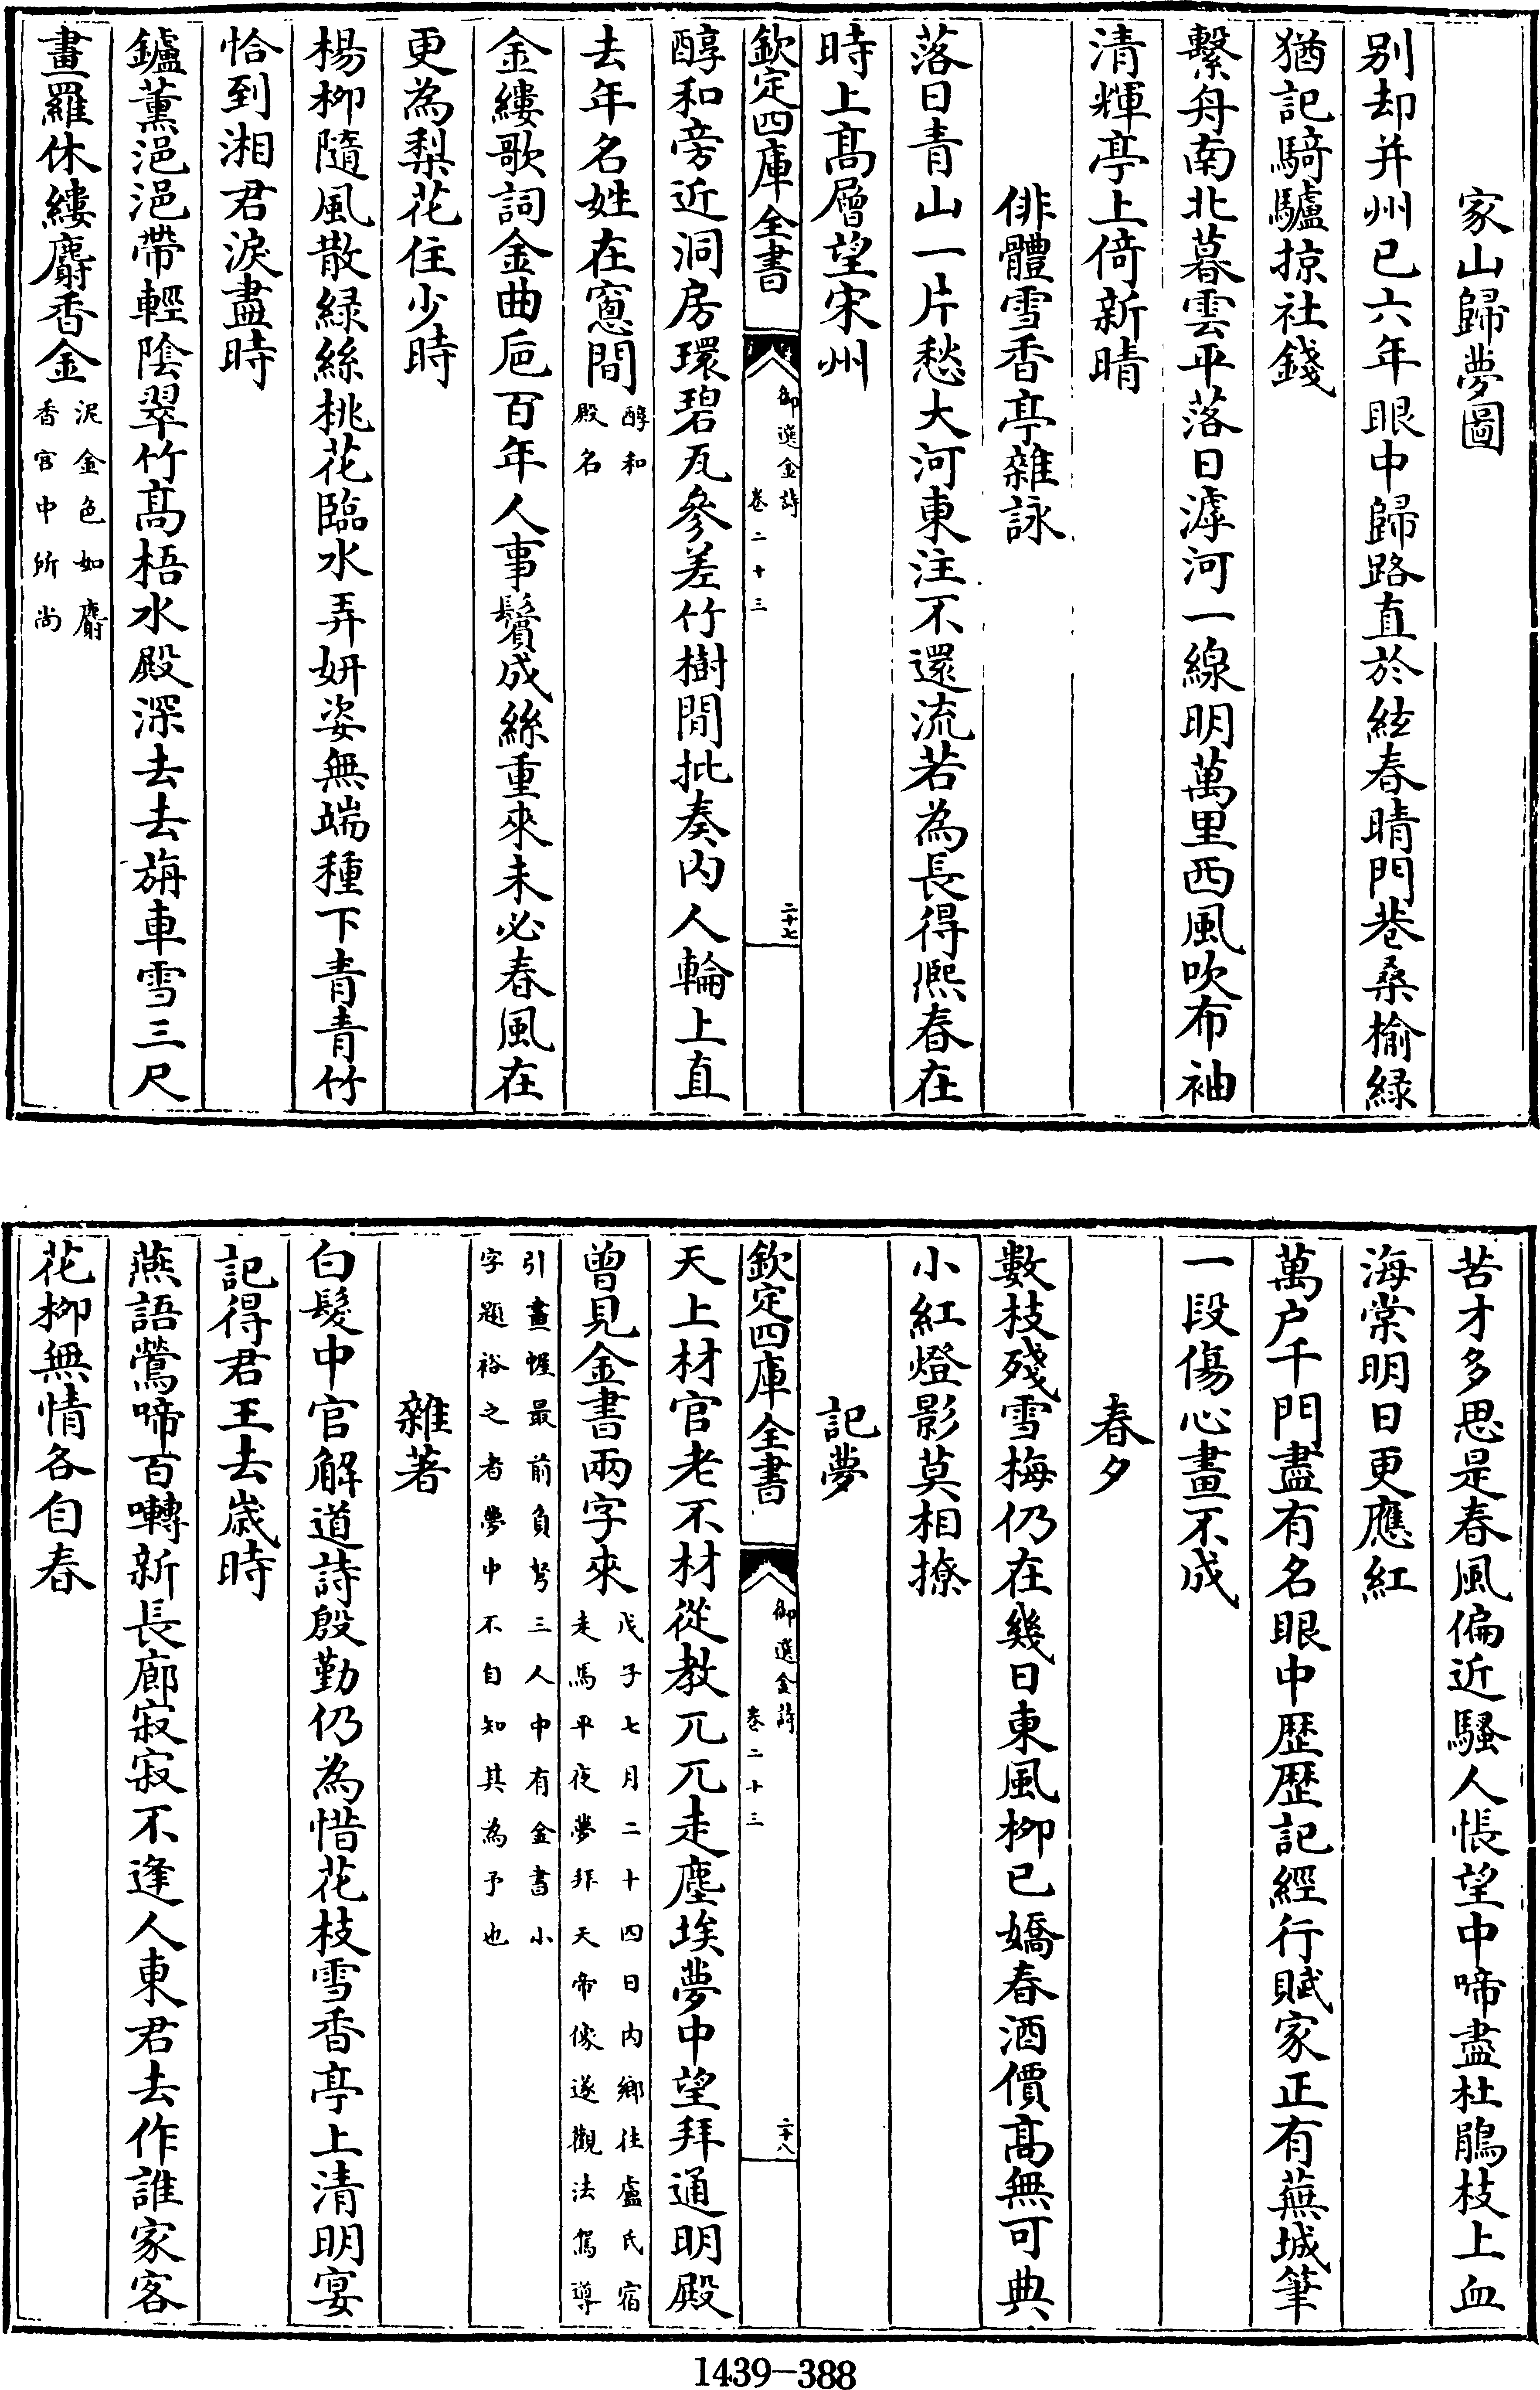 家山歸夢圖
别却并州已六年眼中歸路直於絃春晴門巷桑榆緑
猶記騎驢掠社錢
繫舟南北暮雲平落日滹河一線明萬里西風吹布袖
清輝亭上倚新晴
俳體雪香亭雜詠
落日青山一片愁大河東注不還流若為長得熈春在
時上髙層望宋州
欽定四庫全書
御選金詩
卷二十三
二十七
醇和旁近洞房環碧瓦參差竹樹間批奏内人輪上直
去年名姓在窻間醇和
殿名
金縷歌詞金曲巵百年人事鬢成絲重來未必春風在
更為梨花住少時
楊柳隨風散緑絲桃花臨水弄妍姿無端種下青青竹
恰到湘君淚盡時
鑪薰浥浥帶輕陰翠竹髙梧水殿深去去旃車雪三尺
畫羅休縷麝香金泥金色如麝
香宫中所尚
苦才多思是春風偏近騷人悵望中啼盡杜鵑枝上血
海棠明日更應紅
萬户千門盡有名眼中歴歴記經行賦家正有蕪城筆
一段傷心畫不成
春夕
數枝殘雪梅仍在幾日東風柳已嬌春酒價髙無可典
小紅燈影莫相撩
記夢
欽定四庫全書
御選金詩
卷二十三
二十八
天上材官老不材從教兀兀走塵埃夢中望拜通明殿
曾見金書兩字來戊子七月二十四日内鄉往盧氏宿
走馬平夜夢拜天帝像遂觀法駕導
引畫幄最前負弩三人中有金書小
字題裕之者夢中不自知其為予也
雜著
白髮中官解道詩殷勤仍為惜花枝雪香亭上清明宴
記得君王去嵗時
燕語鶯啼百囀新長廊寂寂不逢人東君去作誰家客
花柳無情各自春
1439-388